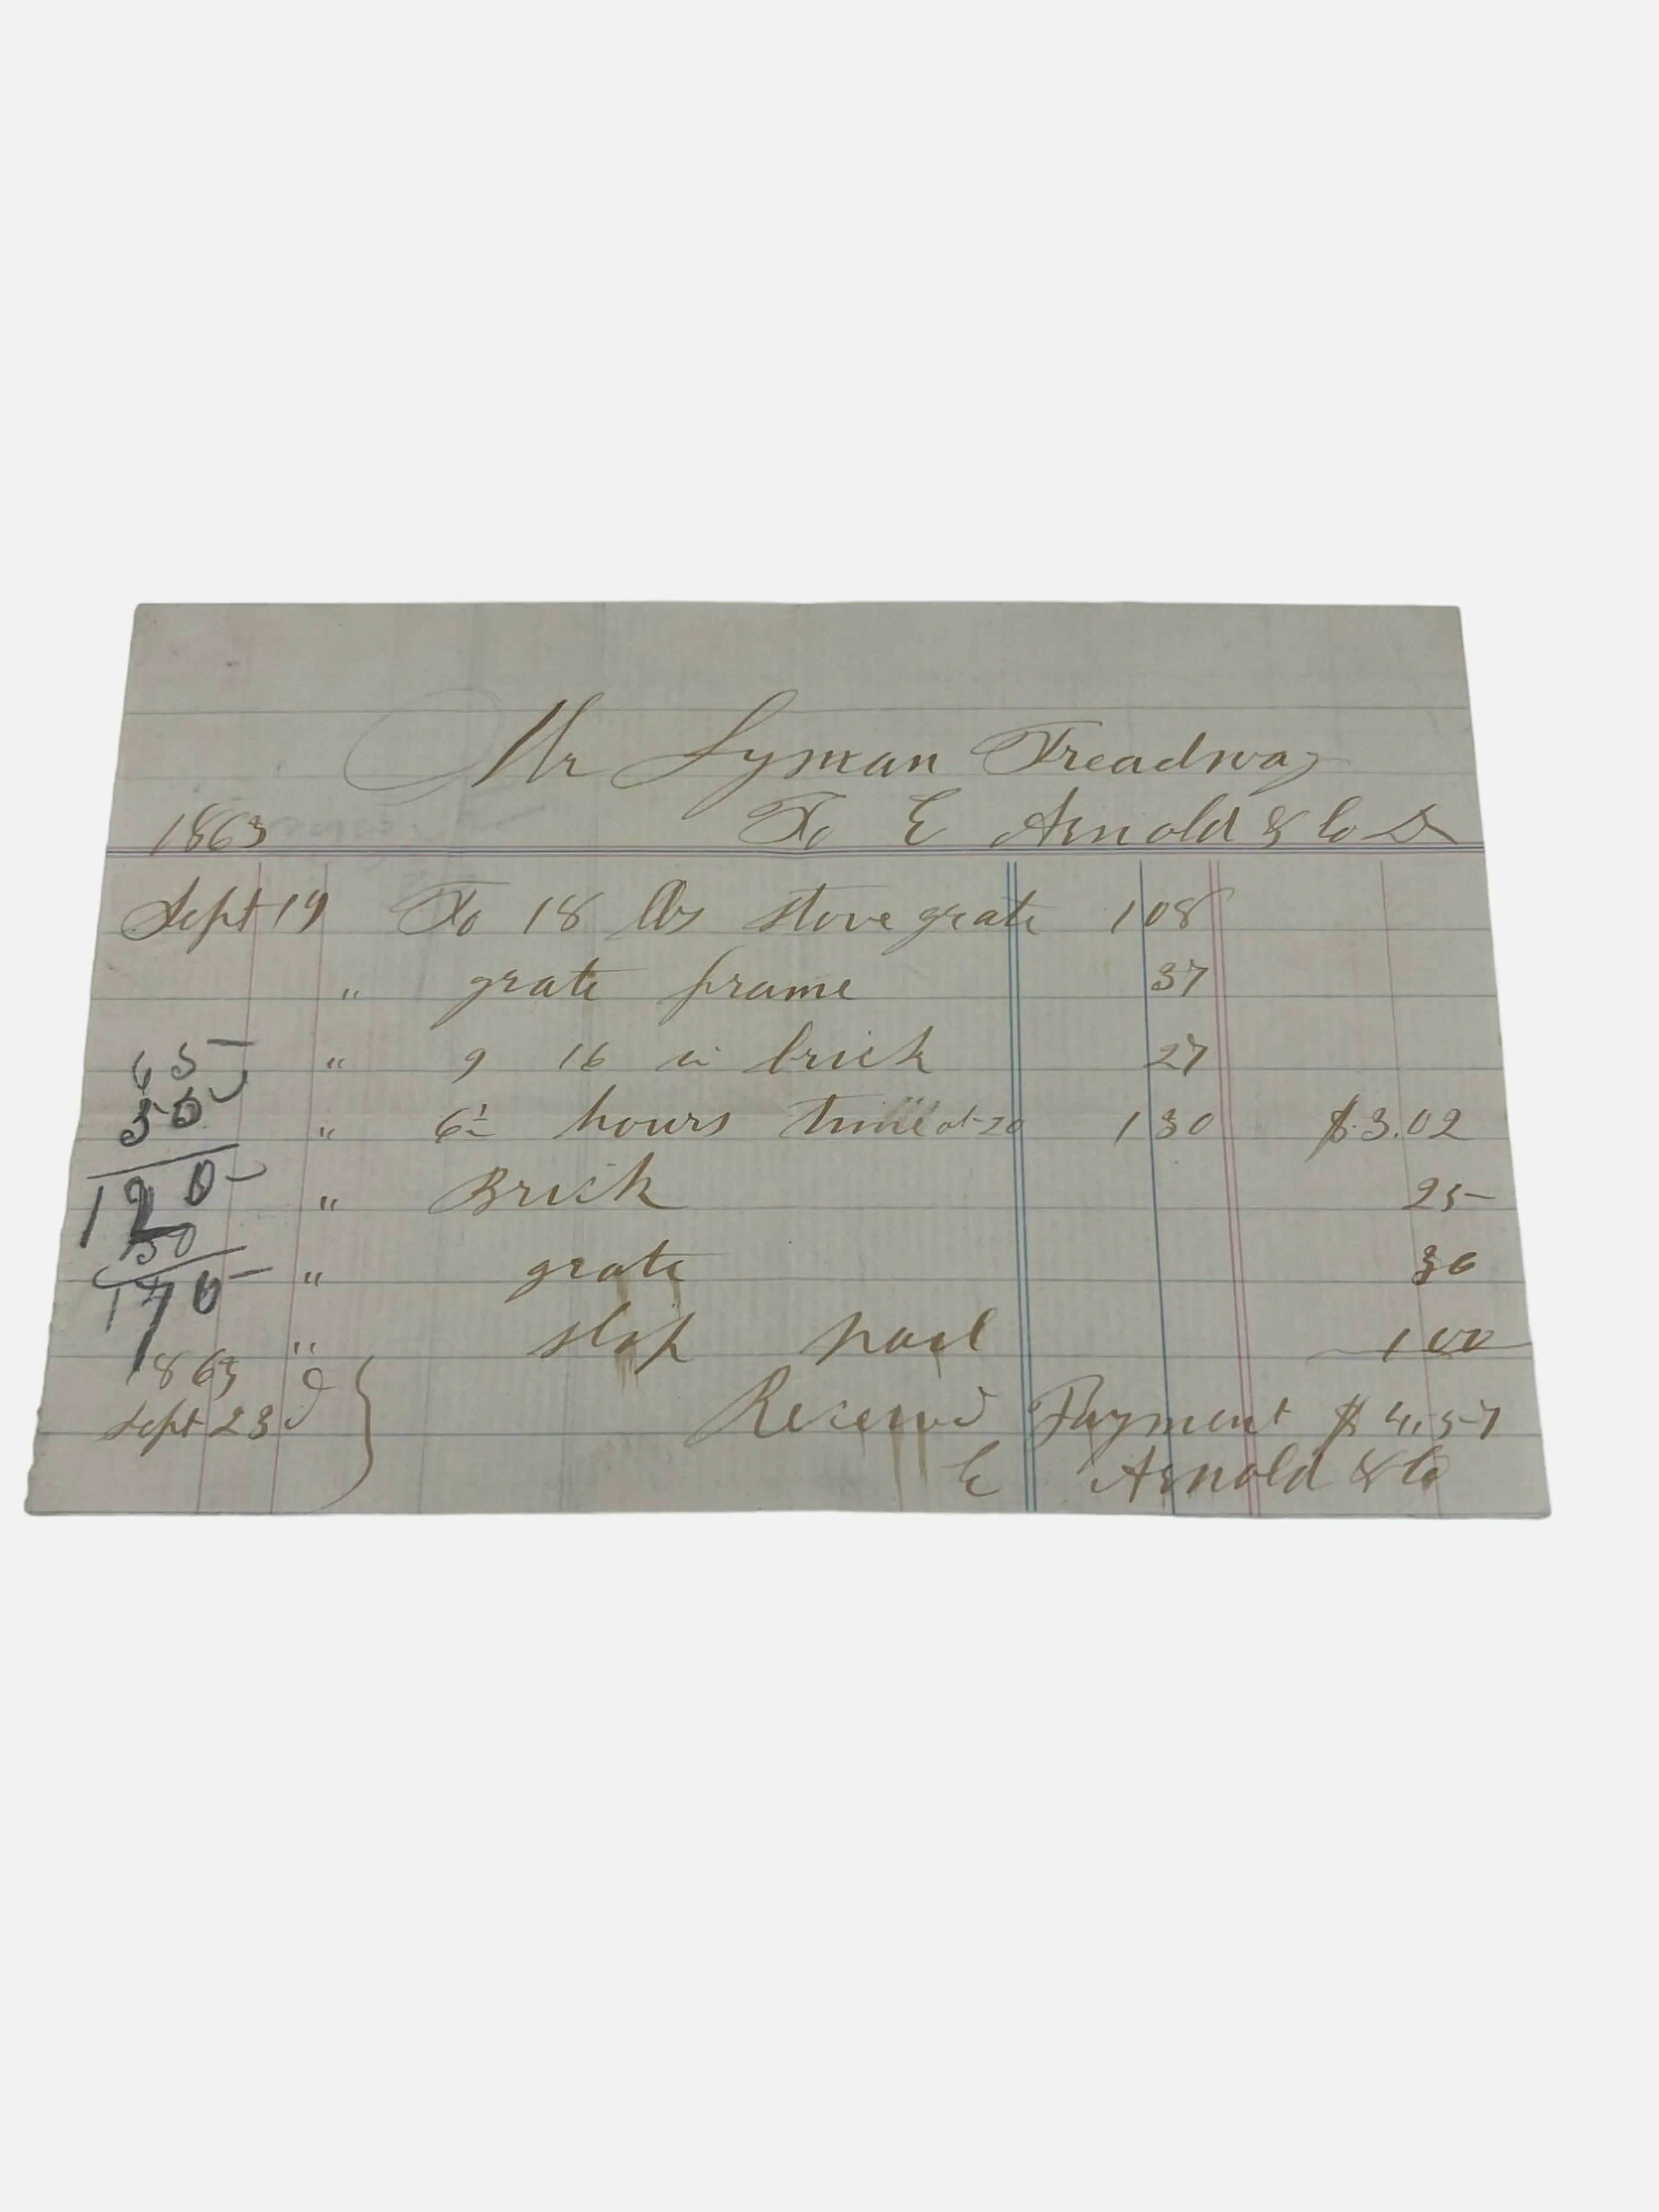 Mr Lyman Treadway
1863 To E Arnold & Co Dr
Sept 19 To 18 lbs stove grate 108
" grate frame 37
" 9 16 in brick 27
" 6½ hours time at 20 130 $3.02
" Brick 25
" grate 30
" slop pail 100
1863
Sept 23d Receivd Payment $4.57
E Arnold & Co
65
50
120
50
170